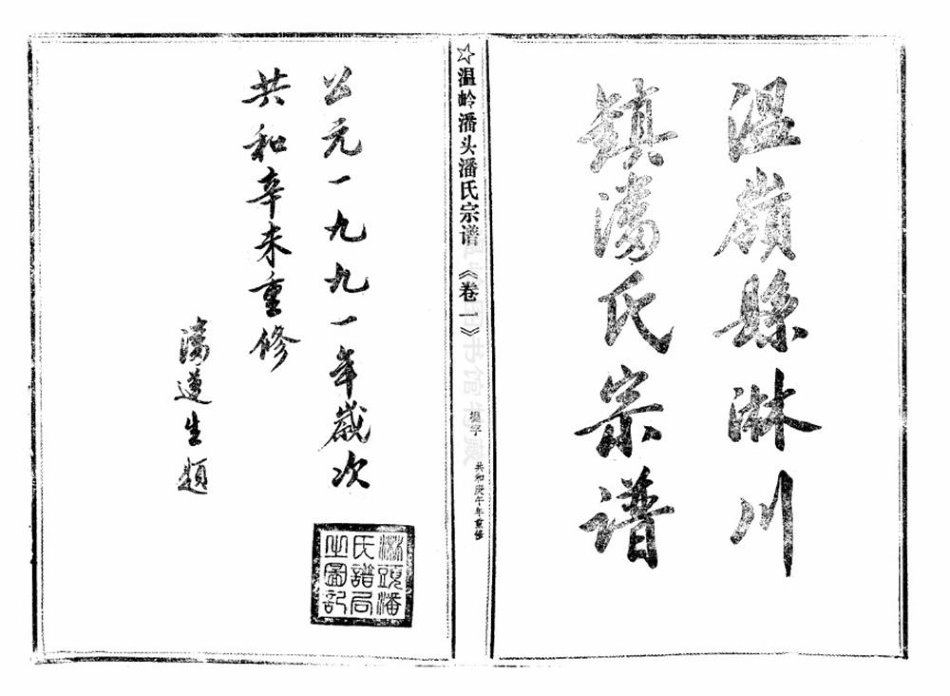 温嶺縣淋川
鎮潘氏宗谱
☆温岭潘头潘氏宗谱《卷一》
共和庚午年重修
公元一九九一年歲次
共和辛未重修
潘遵生題
淋頭潘
氏譜局
之圖記